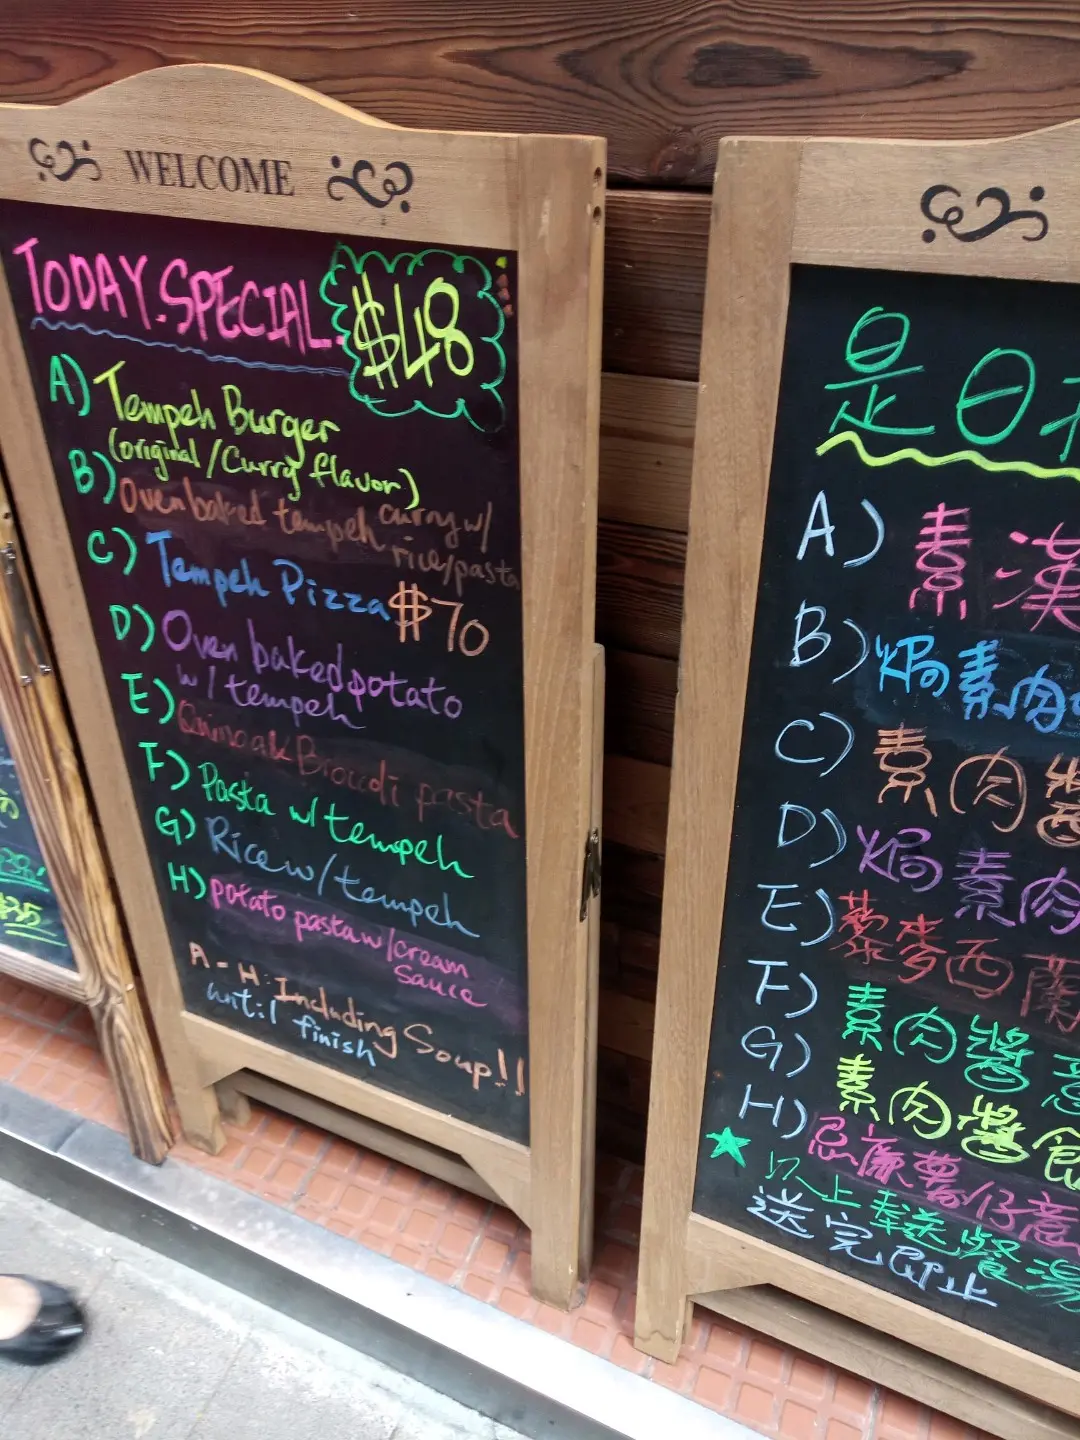 WELCOME
TODAY.SPECIAL.
$48
A) Tempeh Burger
(original/Curry flavor)
B) Oven baked tempeh curry w/
rice/pasta
C) Tempeh Pizza $70
D) Oven baked potato
w/ tempeh
E) Broccoli pasta
F) Pasta w/ tempeh
G) Rice w/ tempeh
H) potato pasta w/ cream
sauce
A - H: Including Soup!!
until finish
$35
是日
A) 素漢
B) 焗素肉
C) 素肉醬
D) 焗素肉
E) 藜麥西蘭
F) 素肉醬意
G) 素肉醬飯
H) 忌廉薯仔意
以上奉送餐湯
送完即止